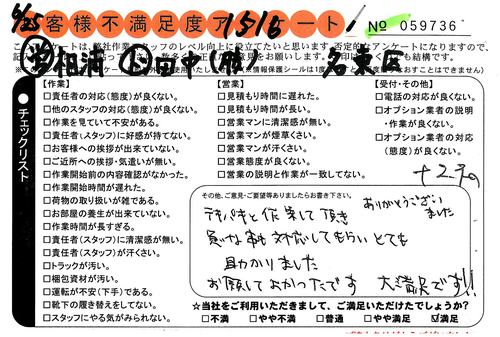 6/25
お客様不満足度アンケート!
1515
№ 059736
このアンケートは、弊社作業スタッフのレベル向上に役立てたいと思います。否定的なアンケートになりますので、
相浦 田中(勝) 名東区
チェックリスト
【作業】
□責任者の対応(態度)が良くない。
□他のスタッフの対応(態度)が良くない。
□作業を見ていて不安がある。
□責任者(スタッフ)に好感が持てない。
□お客様への挨拶が出来ていない。
□ご近所への挨拶・気遣いが無い。
□作業開始前の内容確認がなかった。
□作業開始時間が遅れた。
□荷物の取り扱いが雑である。
□お部屋の養生が出来ていない。
□作業時間が長すぎる。
□責任者(スタッフ)に清潔感が無い。
□責任者(スタッフ)が汗くさい。
□トラックが汚い。
□梱包資材が汚い。
□運転が不安(下手)である。
□靴下の履き替えをしてない。
□スタッフにやる気がみられない。
【営業】
□見積もり時間に遅れた。
□見積もり時間が長い。
□営業マンに清潔感が無い。
□営業マンが煙草くさい。
□営業マンが汗くさい。
□営業態度が良くない。
□営業の説明と作業が一致してない。
【受付・その他】
□電話の対応が良くない。
□オプション業者の説明
・作業が良くない。
□オプション業者の対応
(態度)が良くない。
その他、ご意見・ご要望等ありましたらお書き下さい。
ありがとうござい
ました
テキパキと作業して頂き
急な事も対応してもらいとても
助かりました
お願いしてよかったです 大満足です!!
☆当社をご利用いただきまして、ご満足いただけたでしょうか?
□不満 □やや不満 □普通 □やや満足 ☑満足